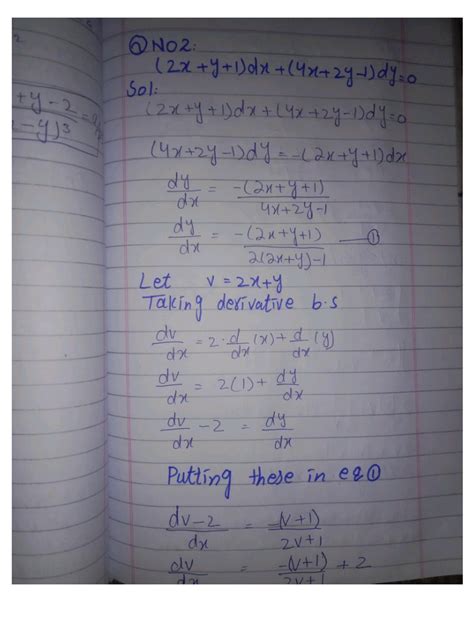 Q NO2:
(2x+y+1)dx+(4x+2y-1)dy=0
Sol:
(2x+y+1)dx+(4x+2y-1)dy=0
(4x+2y-1)dy=-(2x+y+1)dx
dy/dx = -(2x+y+1)/4x+2y-1
dy/dx = -(2x+y+1)/2(2x+y)-1 —①
Let v=2x+y
Taking derivative b.s
dv/dx = 2·d/dx(x)+d/dx(y)
dv/dx = 2(1)+dy/dx
dv/dx-2 = dy/dx
Putting these in eq①
dv-2/dx = -(v+1)/2v+1
dv/dx = -(v+1)/2v+1 + 2